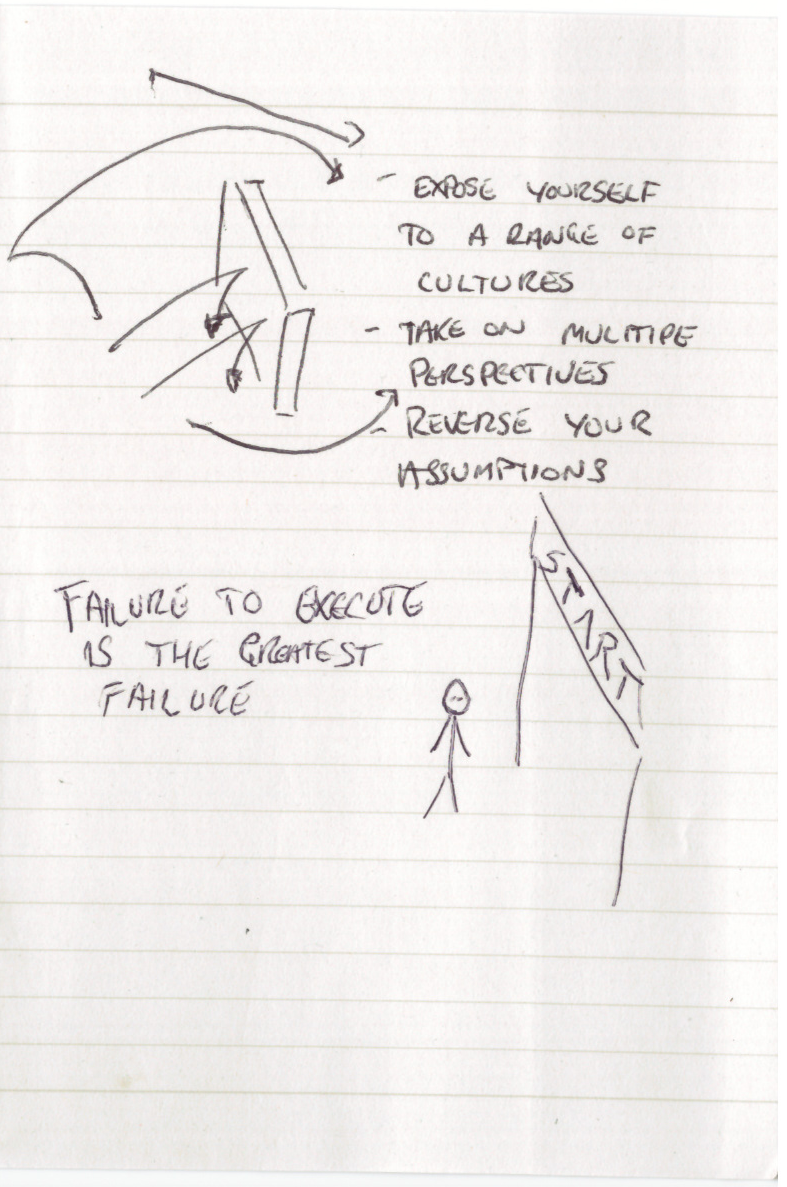 - EXPOSE YOURSELF
TO A RANGE OF
CULTURES
- TAKE ON MULITIPE
PERSPECTIVES
- REVERSE YOUR
ASSUMPTIONS
START
FAILURE TO EXECUTE
IS THE GREATEST
FAILURE